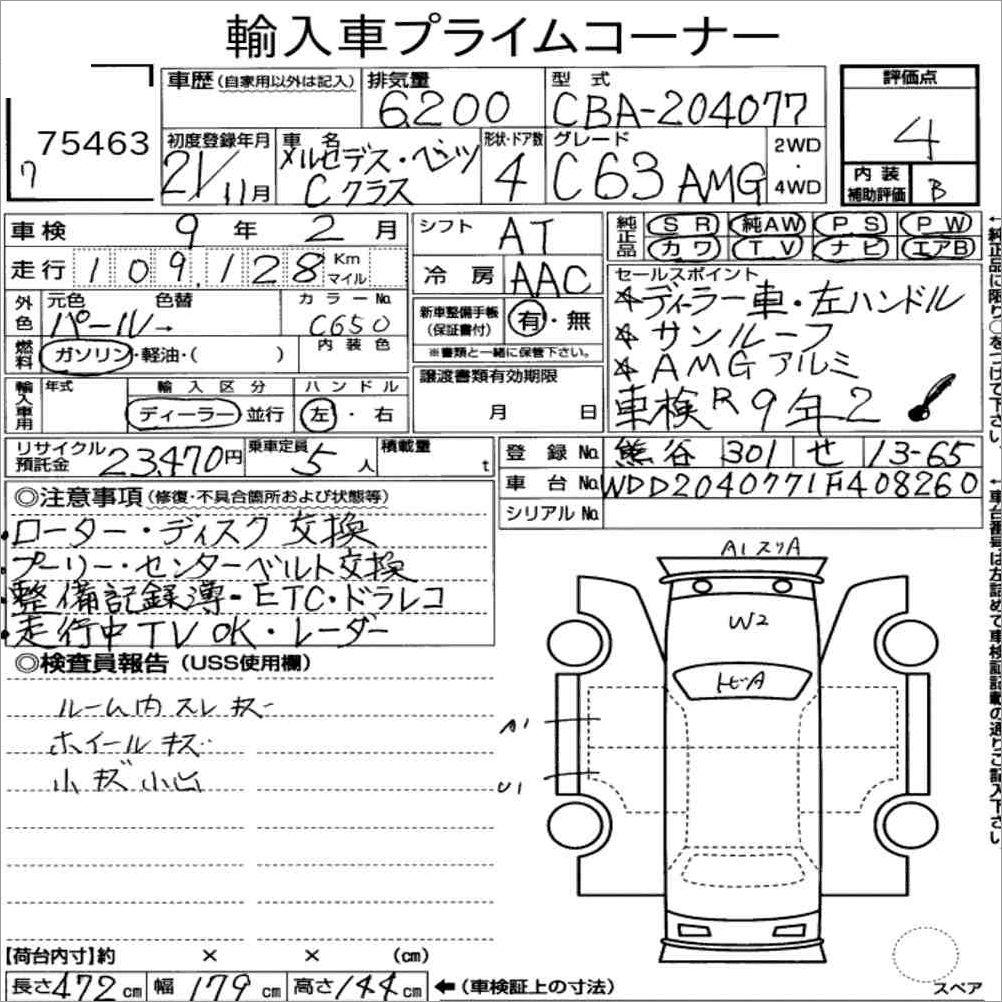 輸入車プライムコーナー
75463
ワ
車歴(自家用以外は記入) 排気量 6200 型式 CBA-204077
評価点 4
初度登録年月 21/11月 車名 メルセデス・ベンツ Cクラス 形状・ドア数 4 グレード C63 AMG 2WD・4WD
内装補助評価 B
車検 9年 2月
走行 109,128 Km マイル
外色 元色 パール→ 色替 カラーNo. C650
内装色
燃料 ガソリン・軽油・( )
シフト AT
冷房 AAC
新車整備手帳(保証書付) 有・無
※書類と一緒に保管下さい。
純正品 SR 純AW PS PW
カワ TV ナビ エアB
セールスポイント
*ディーラー車・左ハンドル
*サンルーフ
*AMGアルミ
車検R9年2
←純正品に限り○をつけて下さい
輸入車用 年式 輸入区分 ディーラー 並行 ハンドル 左・右
譲渡書類有効期限 月 日
リサイクル預託金 23,470円 乗車定員 5人 積載量 t
登録No. 熊谷 301 せ 13-65
車台No. WDD2040771F408260
シリアルNo.
←車台番号は左詰めで車検証記載の通りご記入下さい
◎注意事項(修復・不具合箇所および状態等)
・ローター・ディスク交換
・プーリー・センターベルト交換
・整備記録簿・ETC・ドラレコ
・走行中TV OK・レーダー
◎検査員報告(USS使用欄)
ルーム内スレキズ
ホイールキズ
小キズ小凹
A1スリA
W2
トビA
A1
U1
【荷台内寸】約 × × (cm)
長さ472cm 幅179cm 高さ144cm ←(車検証上の寸法)
スペア